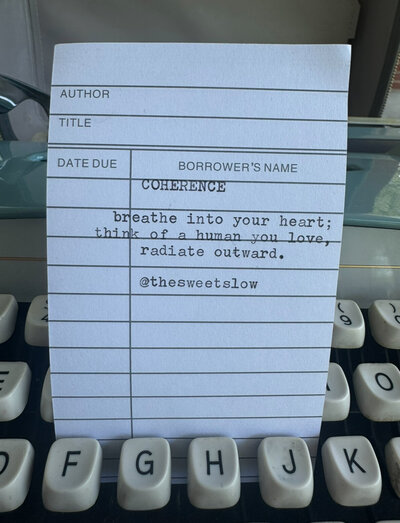 AUTHOR
TITLE
DATE DUE
BORROWER'S NAME
COHERENCE
breathe into your heart;
think of a human you love,
radiate outward.
@thesweetslow
Z
(
9
E
O
F
G
H
J
K